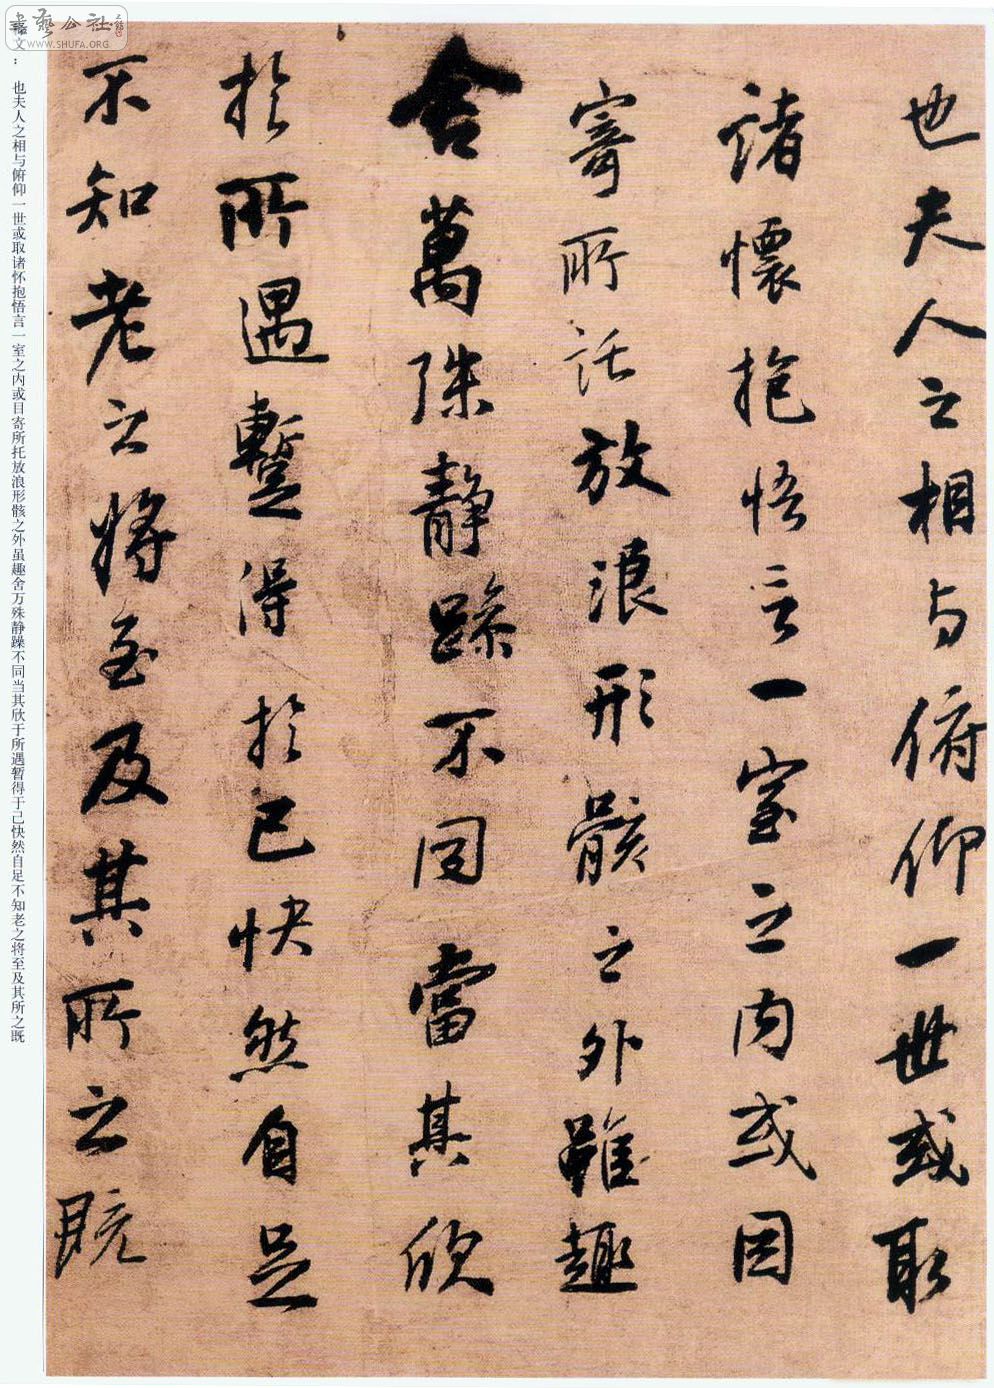 也夫人之相与俯仰一世或取
諸懷抱悟言一室之内或因
寄所託放浪形骸之外雖趣
舍萬殊静躁不同當其欣
於所遇暫得於己快然自足
不知老之將至及其所之既
释文：也夫人之相与俯仰一世或取诸怀抱悟言一室之内或目寄所托放浪形骸之外虽趣舍万殊静躁不同当其欣于所遇暂得于己快然自足不知老之将至及其所之既
書藝公社
WWW.SHUFA.ORG